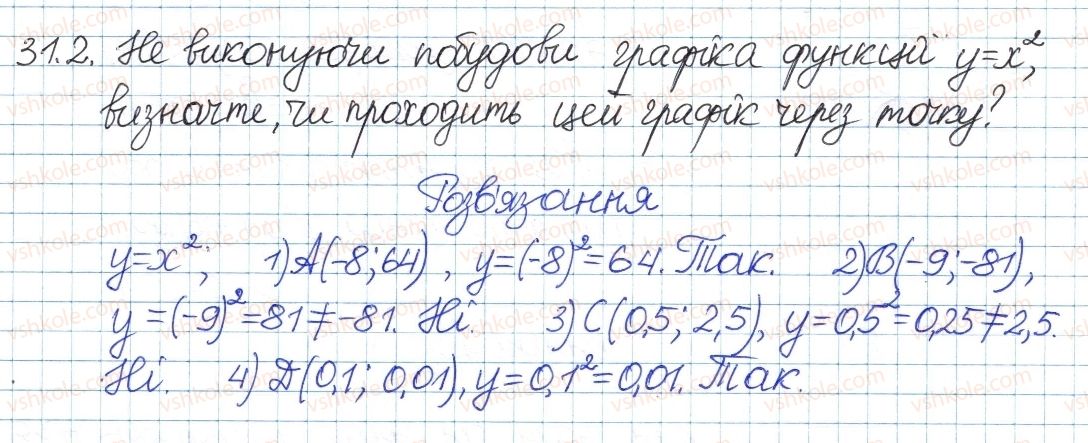 31.2. Не виконуючи побудови графіка функції y=x²,
визначте, чи проходить цей графік через точку?
Розв'язання
y=x²; 1) A(-8; 64), y=(-8)²=64. Так. 2) B(-9; -81),
y=(-9)²=81≠-81. Ні. 3) C(0,5; 2,5), y=0,5²=0,25≠2,5.
Ні. 4) D(0,1; 0,01), y=0,1²=0,01. Так.